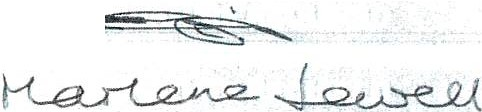 Marlene Sewell